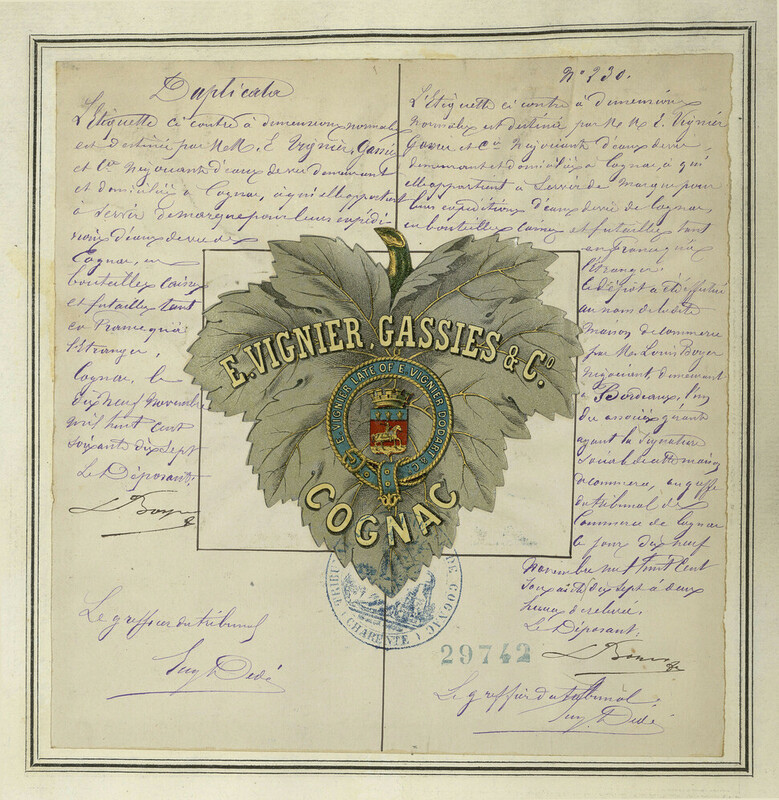 Duplicata
L'Etiquette ci contre à dimensions normales
est destinée par MM. E Vignier, Gassies
et Cie Négociant d'eaux de vie demeurant
et domiciliés à Cognac, à qui elle appartient
à servir de marque pour leurs expédi-
tions d'eaux de vie de
Cognac, en
bouteilles caisses
et futailles tant
en France qu'à
l'Etranger,
Cognac, le
dix neuf Novembre
mil huit cent
soixante dix sept
Le Déposant,
L Boyer
Le greffier du tribunal
Guy Dédé
N° 230.
L'Etiquette ci contre à dimensions
Normales est destinée par M M. E. Vignier
Gassies et Cie Négociant d'eaux de vie,
demeurant et domiciliés à Cognac, à qui
elle appartient à Servir de Marque pour
leurs expéditions d'eaux de vie de Cognac,
en bouteilles caisses et futailles tant
en france qu'à
l'étranger.
Le dépôt a été effectué
au nom de la dite
maison de commerce
par M. Louis Boyer
Négociant, demeurant
à Bordeaux, l'un
des associés gérant
ayant la signature
sociale de cette maison
de commerce, au greffe
du tribunal de
Commerce de Cognac
le jour dix neuf
Novembre mil huit Cent
soixante dix sept à deux
heures de relevée.
Le Déposant,
L Boyer
Le greffier du tribunal,
Guy Dédé
E. VIGNIER, GASSIES & Co.
E. VIGNIER LATE OF E. VIGNIER DODART & Co.
COGNAC
TRIBUNAL DE COGNAC
(CHARENTE)
29742